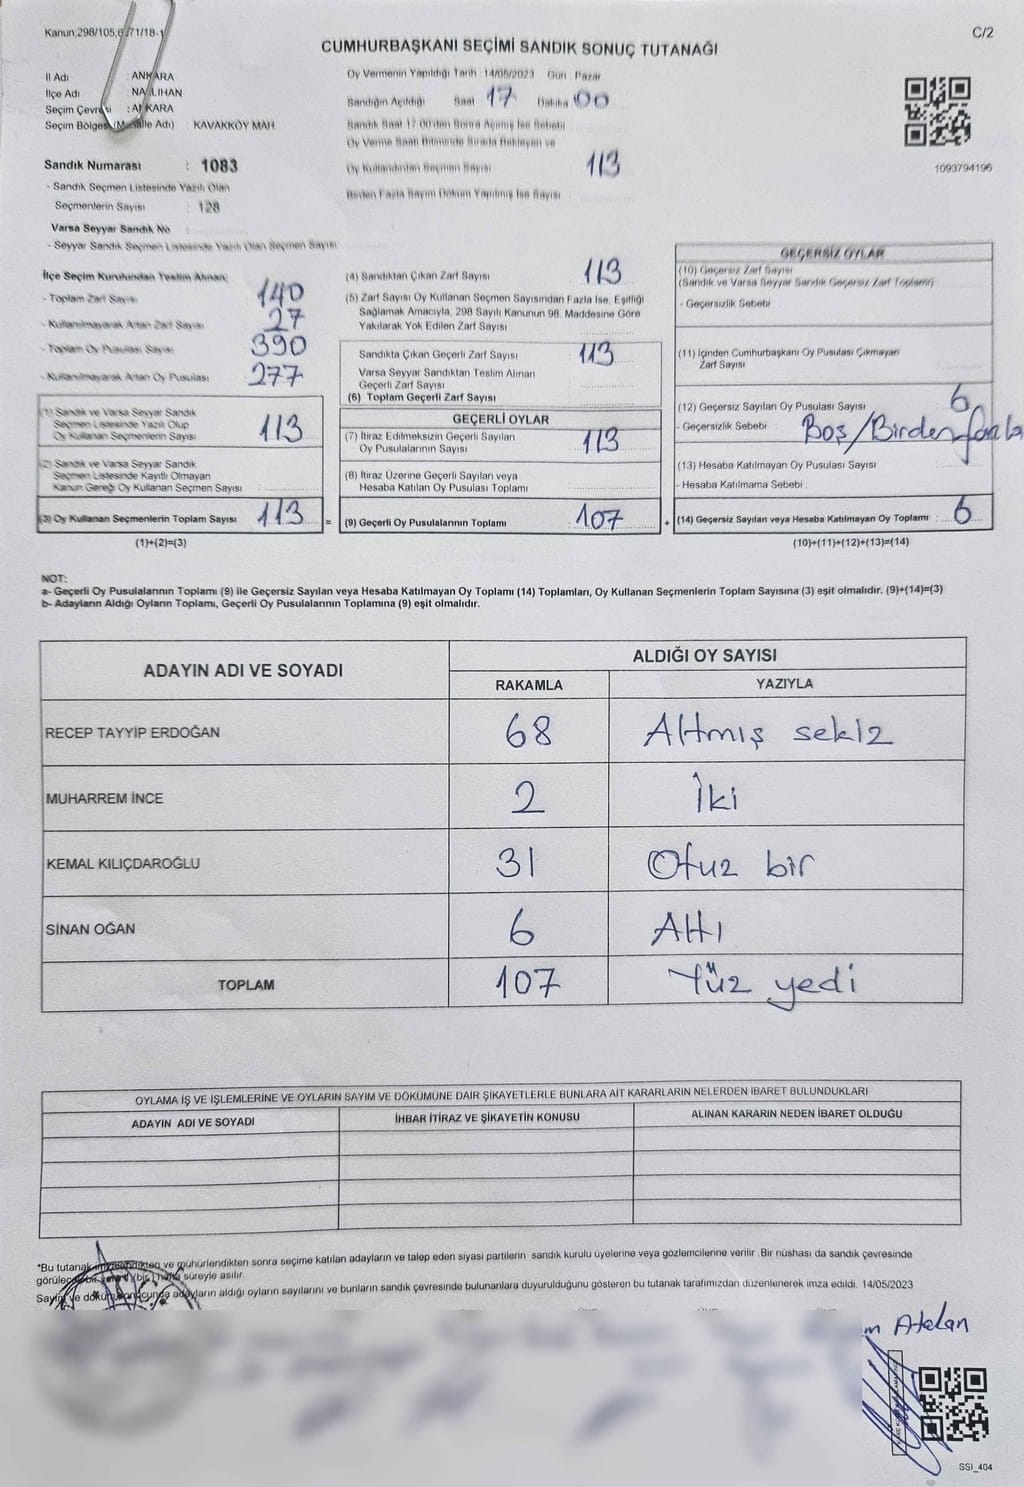 Kanun;298/105,6 71/18-1
C/2
CUMHURBAŞKANI SEÇİMİ SANDIK SONUÇ TUTANAĞI
İl Adı : ANKARA
İlçe Adı : NALLIHAN
Seçim Çevresi : ANKARA
Seçim Bölgesi (Mahalle Adı) : KAVAKKÖY MAH.
Sandık Numarası : 1083
- Sandık Seçmen Listesinde Yazılı Olan
Seçmenlerin Sayısı : 128
Varsa Seyyar Sandık No :
- Seyyar Sandık Seçmen Listesinde Yazılı Olan Seçmen Sayısı
Oy Vermenin Yapıldığı Tarih : 14/05/2023 Gün : Pazar
Sandığın Açıldığı Saat 17 Dakika 00
Sandık Saat 17:00'den Sonra Açılmış İse Sebebi
Oy Verme Saati Bitiminde Sırada Bekleyen ve
Oy Kullandırılan Seçmen Sayısı 113
Birden Fazla Sayım Döküm Yapılmış İse Sayısı
1093794196
İlçe Seçim Kurulundan Teslim Alınan;
- Toplam Zarf Sayısı 140
- Kullanılmayarak Artan Zarf Sayısı 27
- Toplam Oy Pusulası Sayısı 390
- Kullanılmayarak Artan Oy Pusulası 277
(1) Sandık ve Varsa Seyyar Sandık
Seçmen Listesinde Yazılı Olup
Oy Kullanan Seçmenlerin Sayısı 113
(2) Sandık ve Varsa Seyyar Sandık
Seçmen Listesinde Kayıtlı Olmayan
Kanun Gereği Oy Kullanan Seçmen Sayısı
(3) Oy Kullanan Seçmenlerin Toplam Sayısı 113
(1)+(2)=(3)
=
(4) Sandıktan Çıkan Zarf Sayısı 113
(5) Zarf Sayısı Oy Kullanan Seçmen Sayısından Fazla İse, Eşitliği
Sağlamak Amacıyla, 298 Sayılı Kanunun 98. Maddesine Göre
Yakılarak Yok Edilen Zarf Sayısı
Sandıkta Çıkan Geçerli Zarf Sayısı 113
Varsa Seyyar Sandıktan Teslim Alınan
Geçerli Zarf Sayısı
(6) Toplam Geçerli Zarf Sayısı
GEÇERLİ OYLAR
(7) İtiraz Edilmeksizin Geçerli Sayılan
Oy Pusulalarının Sayısı 113
(8) İtiraz Üzerine Geçerli Sayılan veya
Hesaba Katılan Oy Pusulası Toplamı
(9) Geçerli Oy Pusulalarının Toplamı 107
+
GEÇERSİZ OYLAR
(10) Geçersiz Zarf Sayısı
(Sandık ve Varsa Seyyar Sandık Geçersiz Zarf Toplamı)
- Geçersizlik Sebebi :
(11) İçinden Cumhurbaşkanı Oy Pusulası Çıkmayan
Zarf Sayısı
(12) Geçersiz Sayılan Oy Pusulası Sayısı 6
- Geçersizlik Sebebi : Boş/Birden fazla
(13) Hesaba Katılmayan Oy Pusulası Sayısı
- Hesaba Katılmama Sebebi :
(14) Geçersiz Sayılan veya Hesaba Katılmayan Oy Toplamı : 6
(10)+(11)+(12)+(13)=(14)
NOT:
a- Geçerli Oy Pusulalarının Toplamı (9) ile Geçersiz Sayılan veya Hesaba Katılmayan Oy Toplamı (14) Toplamları, Oy Kullanan Seçmenlerin Toplam Sayısına (3) eşit olmalıdır. (9)+(14)=(3)
b- Adayların Aldığı Oyların Toplamı, Geçerli Oy Pusulalarının Toplamına (9) eşit olmalıdır.
ADAYIN ADI VE SOYADI
ALDIĞI OY SAYISI
RAKAMLA YAZIYLA
RECEP TAYYİP ERDOĞAN 68 Altmış sekiz
MUHARREM İNCE 2 İki
KEMAL KILIÇDAROĞLU 31 Otuz bir
SİNAN OĞAN 6 Altı
TOPLAM 107 Yüz yedi
OYLAMA İŞ VE İŞLEMLERİNE VE OYLARIN SAYIM VE DÖKÜMÜNE DAİR ŞİKAYETLERLE BUNLARA AİT KARARLARIN NELERDEN İBARET BULUNDUKLARI
ADAYIN ADI VE SOYADI İHBAR İTİRAZ VE ŞİKAYETİN KONUSU ALINAN KARARIN NEDEN İBARET OLDUĞU
*Bu tutanak imzalandıktan ve mühürlendikten sonra seçime katılan adayların ve talep eden siyasi partilerin sandık kurulu üyelerine veya gözlemcilerine verilir .Bir nüshası da sandık çevresinde
görülecek bir yere 1 (bir) hafta süreyle asılır.
Sayım ve döküm sonucunda adayların aldığı oyların sayılarını ve bunların sandık çevresinde bulunanlara duyurulduğunu gösteren bu tutanak tarafımızdan düzenlenerek imza edildi. 14/05/2023
m Atalan
SSI_404